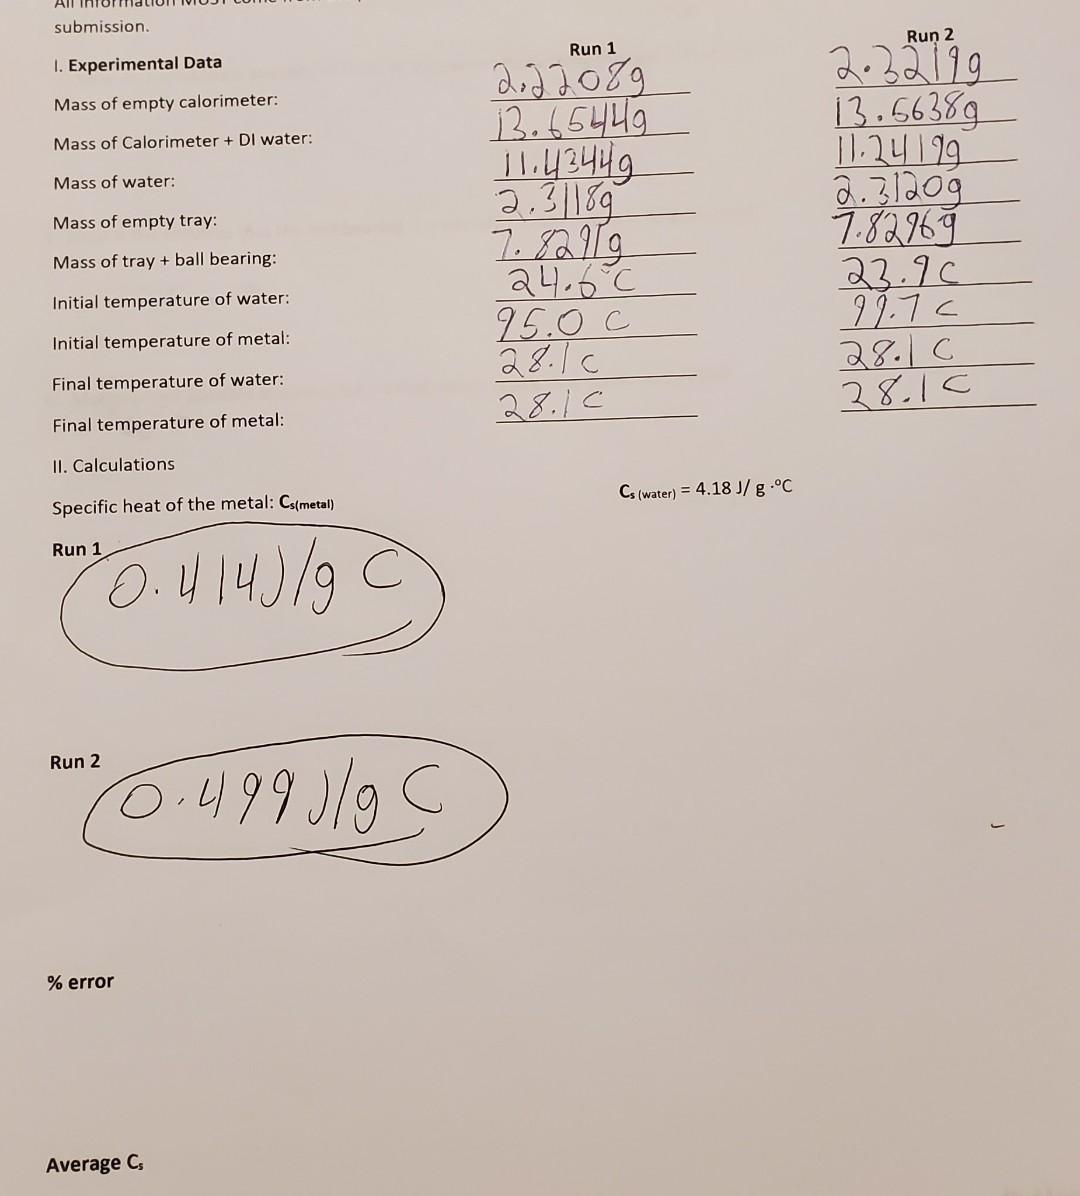 submission.
Run 1 Run 2
I. Experimental Data
Mass of empty calorimeter: 2.2208g 2.3219g
Mass of Calorimeter + DI water: 13.6544g 13.5638g
Mass of water: 11.4344g 11.2419g
Mass of empty tray: 2.3118g 2.3120g
Mass of tray + ball bearing: 7.8291g 7.8296g
Initial temperature of water: 24.6°C 23.9C
Initial temperature of metal: 95.0 C 99.7 C
Final temperature of water: 28.1C 28.1 C
Final temperature of metal: 28.1C 28.1C
II. Calculations
Specific heat of the metal: Cs(metal) Cs (water) = 4.18 J/ g ·ºC
Run 1
0.414J/g C
Run 2
0.499J/g C
% error
Average Cs